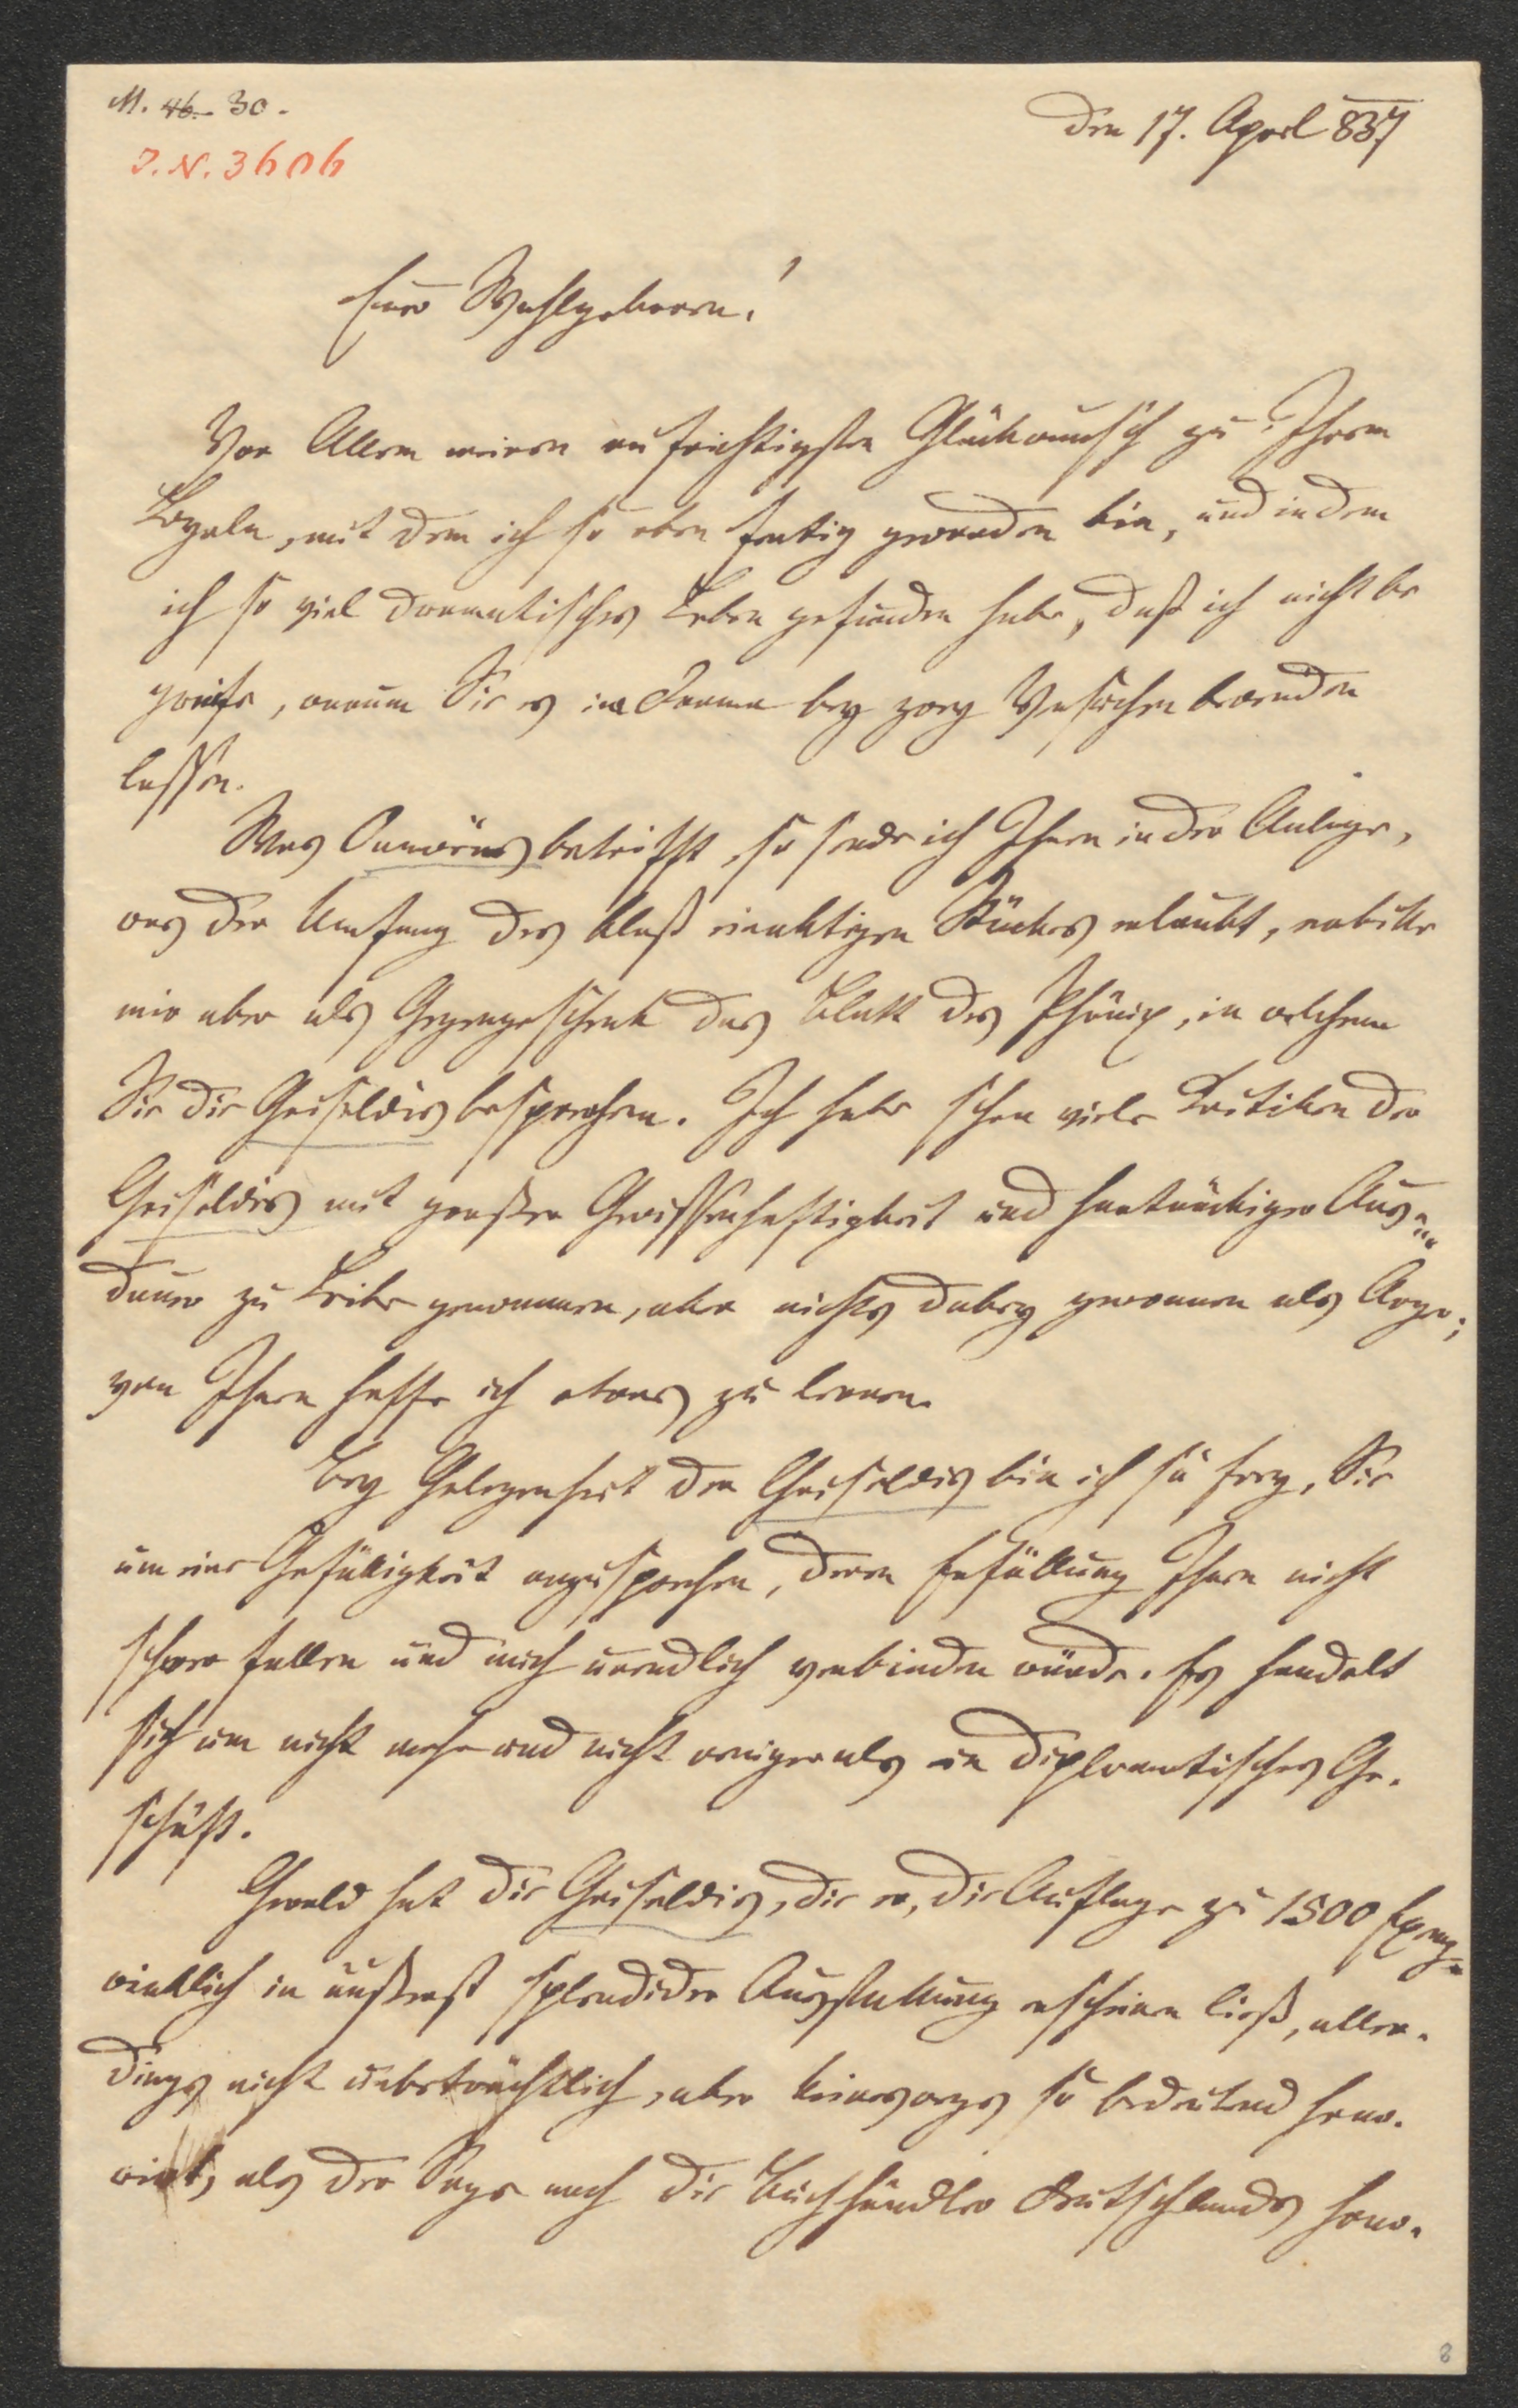 M. 46. 30.
J. N. 3606
Den 17. April 837
Euer Wohlgeboren!
Vor Allem meinen aufrichtigsten Glückwunsch zu Ihrem
mit dem ich so eben fertig geworden bin, und in dem
ich so viel dramatisches Leben gefunden habe, daß ich nicht be
greife, warum Sie es im Drama bey zwey Versuchen bewenden
lassen.
Was Camoëns betrifft, so sende ich Ihnen in der Anlage,
was der Umfang des bloß einaktigen Stückes erlaubt, erbitte
mir aber als Gegengeschenk das Blatt des Phönix, in welchem
Sie die Griseldis besprochen. Ich habe schon viele Kritiken der
Griseldis mit großer Gewissenhaftigkeit und hartnäckiger Aus=
dauer zu Leibe genommen, aber nichts dabey gewonnen als Ärger;
von Ihnen hoffe ich etwas zu lernen.
Bey Gelegenheit der Griseldis bin ich so frey, Sie
um eine Gefälligkeit anzusprechen, deren Erfüllung Ihnen nicht
schwer fallen und mich unendlich verbinden würde. Es handelt
sich um nicht mehr und nicht weniger als ein diplomatisches Ge-
schäft.
Gerold hat die Griseldis, die er, die Auflage zu 1500 Exempl.
wirklich in äußerst splendider Ausstattung erscheinen ließ, aller-
dings nicht unbeträchtlich, aber keineswegs so bedeutend hono-
rirt, als der Sage nach die Buchhändler Deutschlands hono-
8